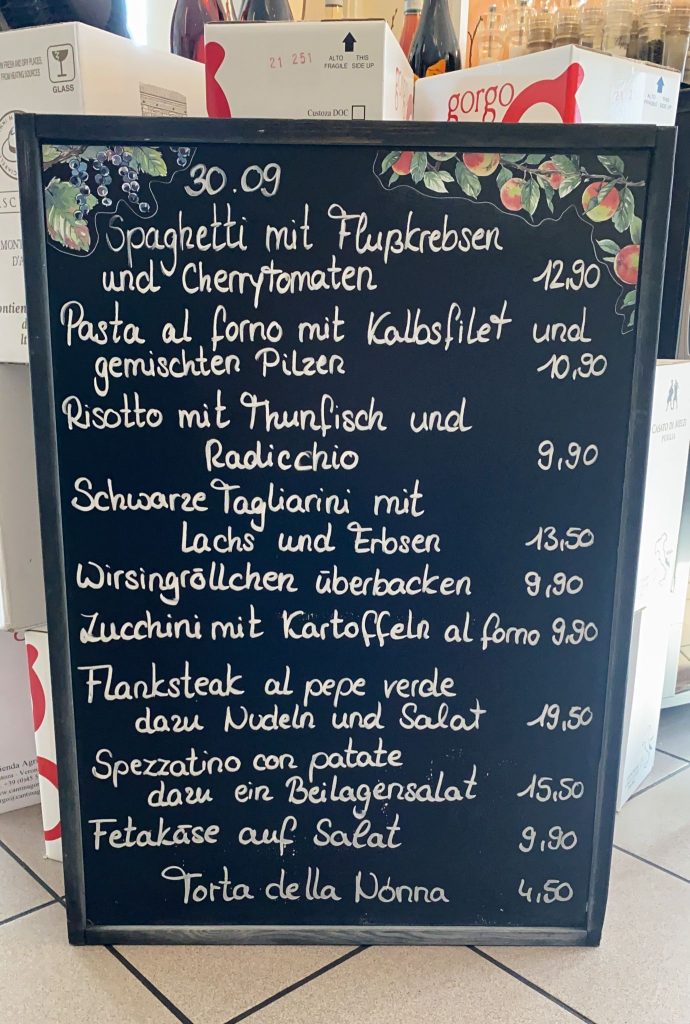 GLASS
21 251
ALTO
FRAGILE
THIS
SIDE UP
Custoza DOC
gorgo
CASATO DI MELZI
PUGLIA
30.09
Spaghetti mit Flußkrebsen
und Cherrytomaten 12,90
Pasta al forno mit Kalbsfilet und
gemischten Pilzen 10,90
Risotto mit Thunfisch und
Radicchio 9,90
Schwarze Tagliarini mit
Lachs und Erbsen 13,50
Wirsingröllchen überbacken 9,90
Zucchini mit Kartoffeln al forno 9,90
Flanksteak al pepe verde
dazu Nudeln und Salat 19,50
Spezzatino con patate
dazu ein Beilagensalat 15,50
Fetakäse auf Salat 9,90
Torta della Nonna 4,50